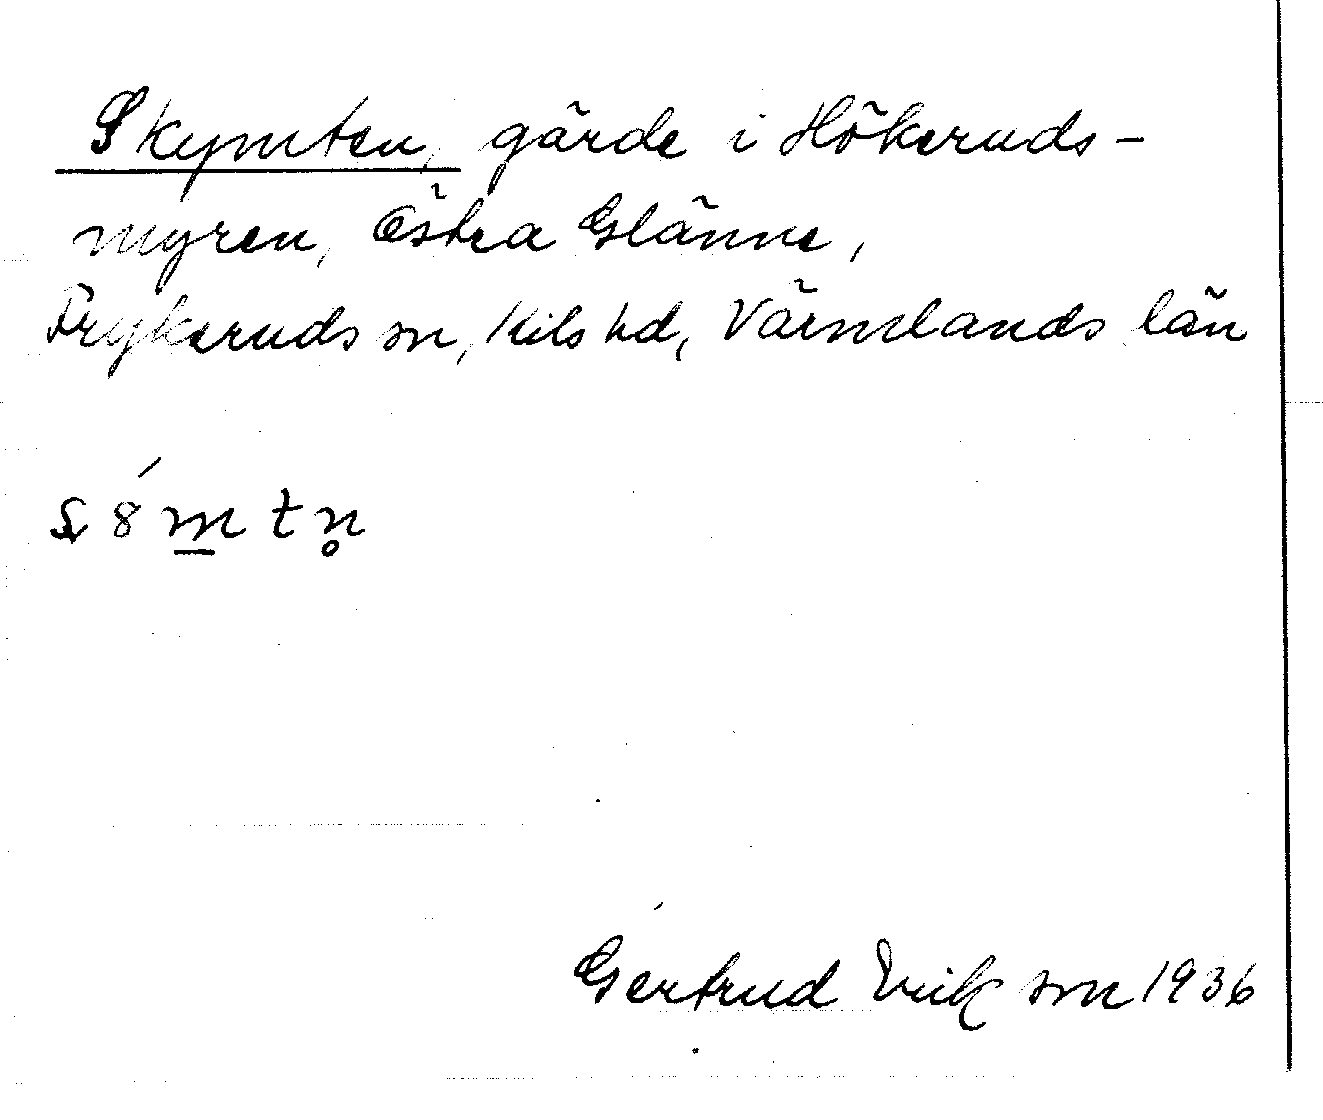 Skymten, gärde i Hökeruds-
myren, Östra Glänne,
Frykeruds sn, Kils hd, Värmlands län
Gertrud Erikson 1936